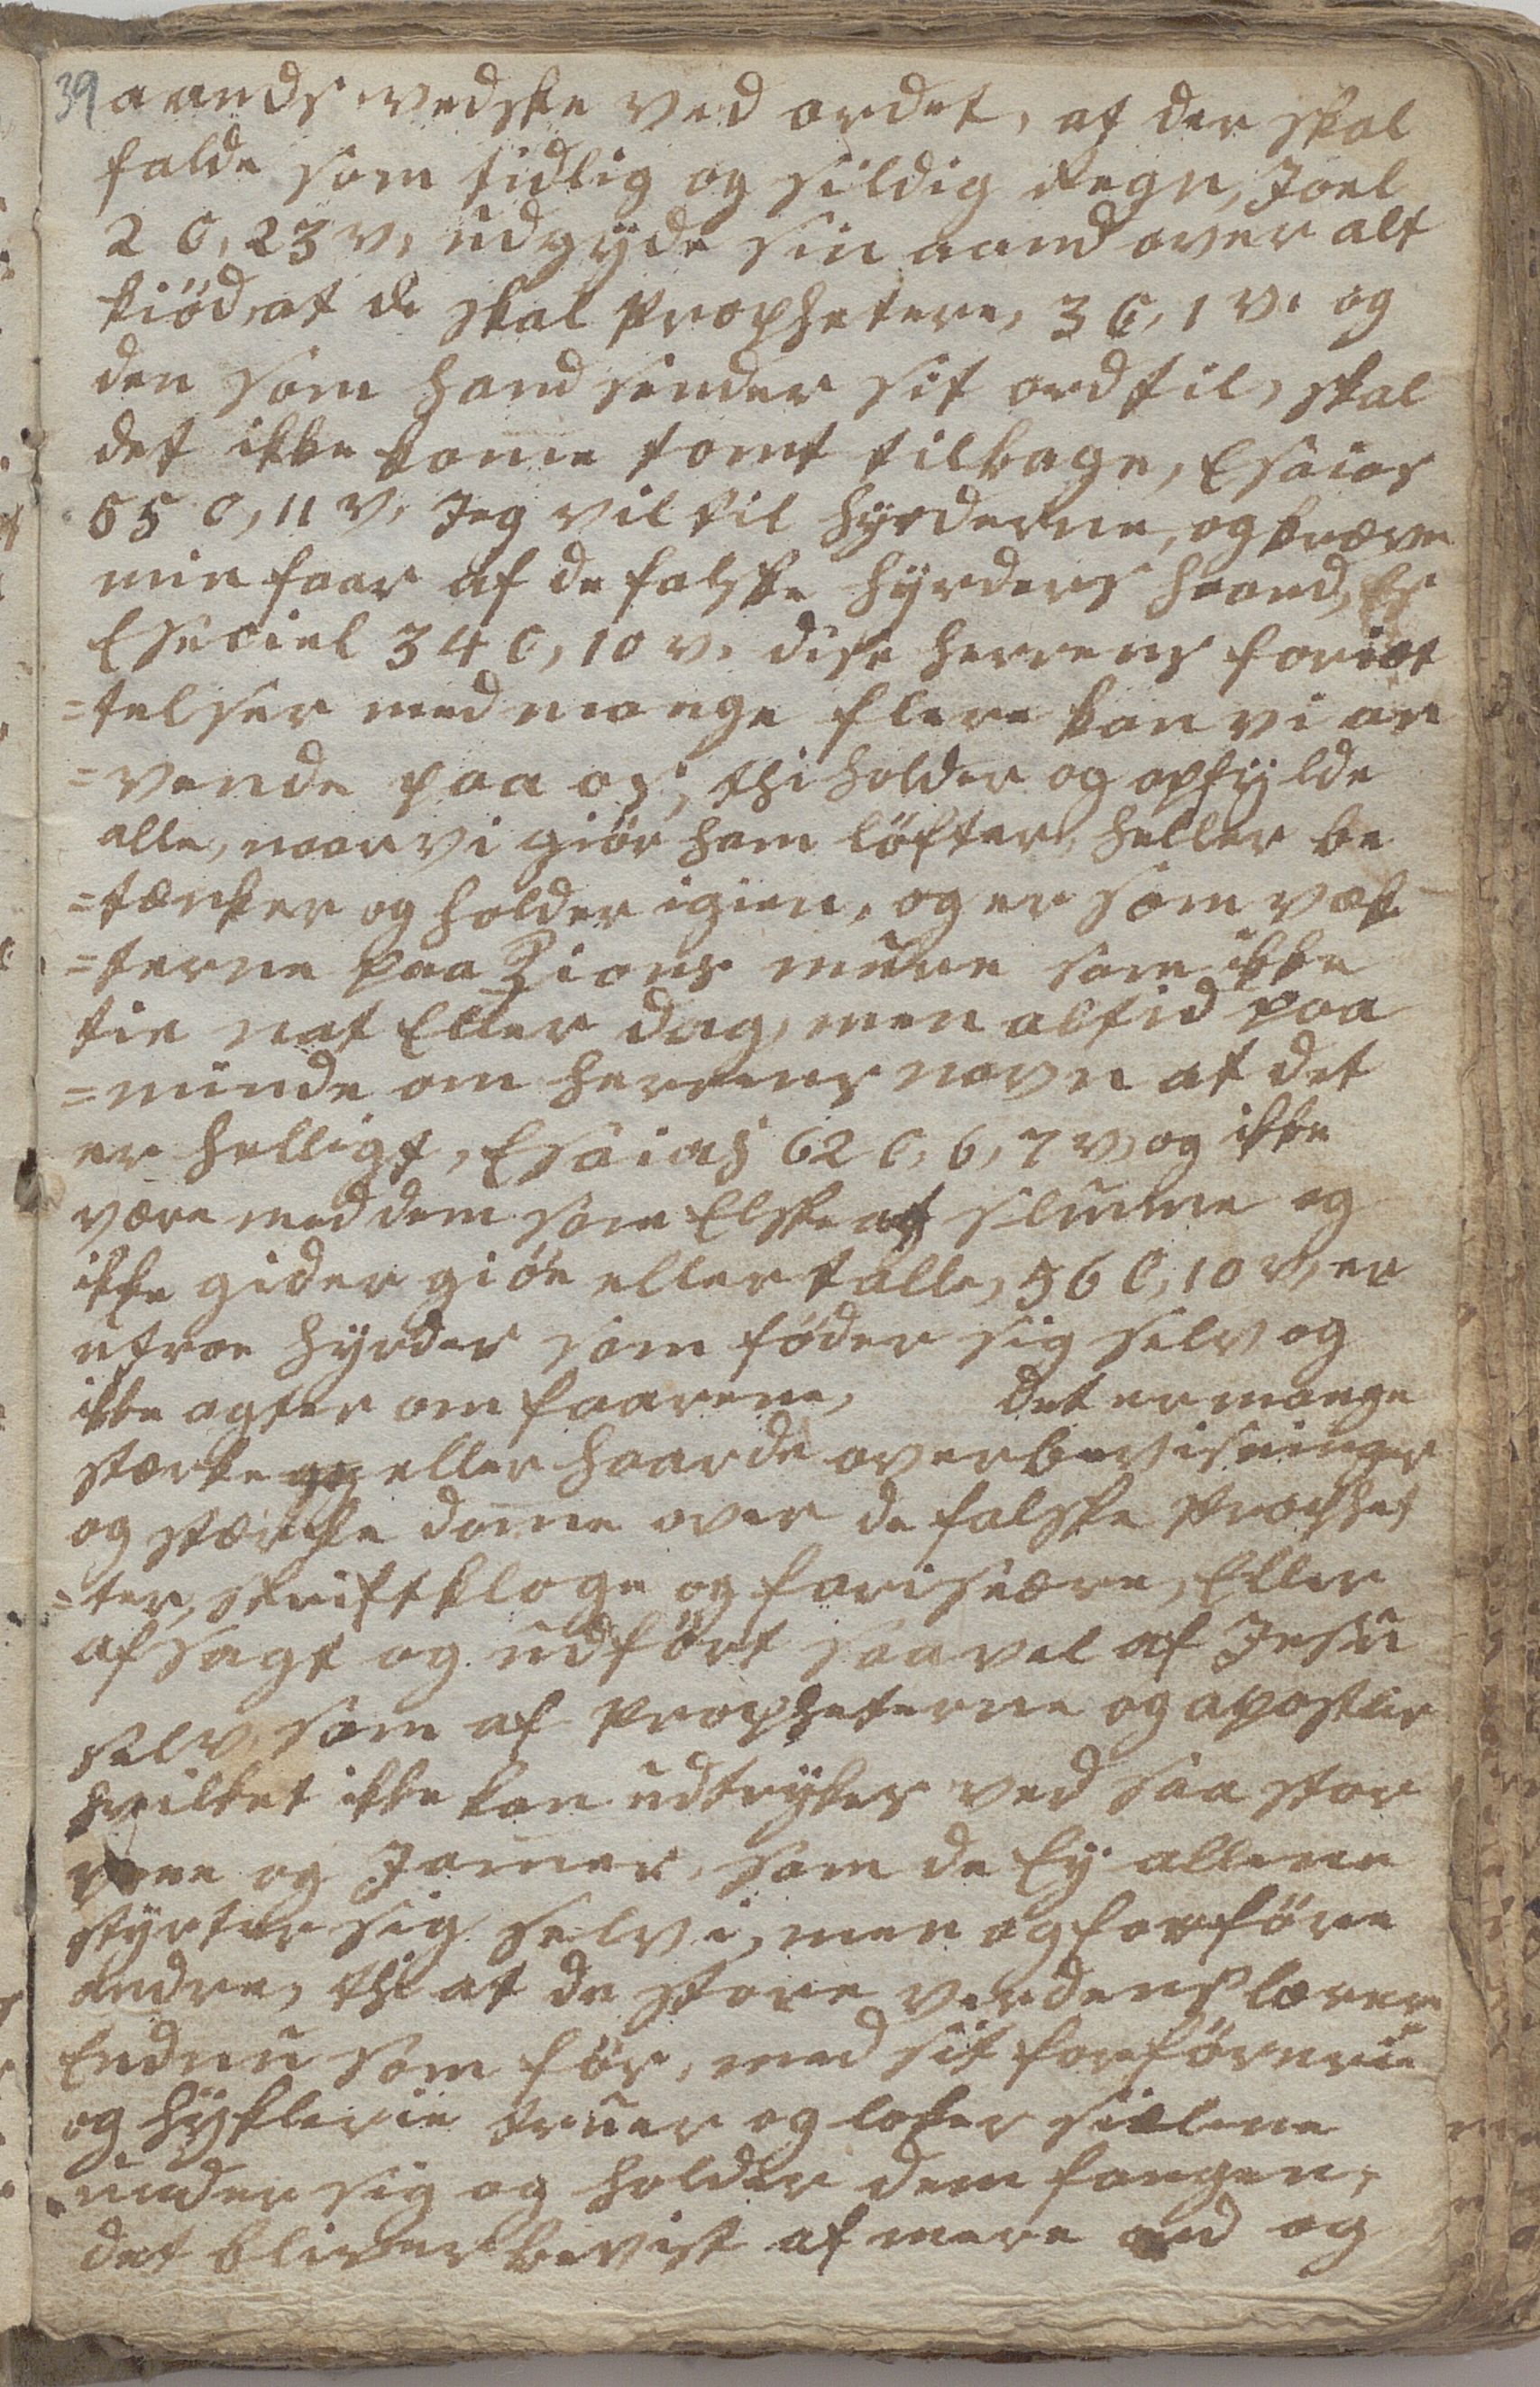 39 aands vedske ved ordet, at der skal
falde som tidlig og sildig Regn, Joel
2 C, 23 v, udgyde sin aand over alt
kiöd, at de skal prophetere, 3 C, 1 v. og
den som hand sender sit ord til, skal
det ikke kome tomt tilbage, Esaias
55 C, 11 v, Jeg vil til hyrderne, og kræve
min faar af de falske hyrders haand, Es
Eseciel 34 C, 10 v. dise herrens forjet
=telser med mange flere kan vi an
=vende paa os, thi holder og opfylde
alle, naar vi giör ham löfter, heller be
=tænker og holder igien, og er som væk
=terne paa Zions mure som ikke
tie nat Eller dag, men altid paa
=minde om herrens navn at det
er helligt, Esaias 62 C, 6, 7 v, og ikke
være med dem som Elske at slumme og
ikke gider giöe eller talle, 56 C, 10 v, er
utroe hyrder som föder sig selv og
ikke agter om faarene, det er mange
stærke eller haarde overbevisninger
og stærke dome over de falske prophe
=ter, skriftkloge og fariseære, Eller
afsagt og udfört saavel af Jesu
selv, som af propheterne og apostler
hvilket ikke kan udtrykes ved saa stor
vee og Jamer, som de Ey allene
styrter sig selv i, men og forföre
andre, thi at de store verdens lærere
Endnu som för, med sit forförerie
og hyklerie truer og loker sielene
under sig og holder dem fangen,
det bliver bevist af mere ord og